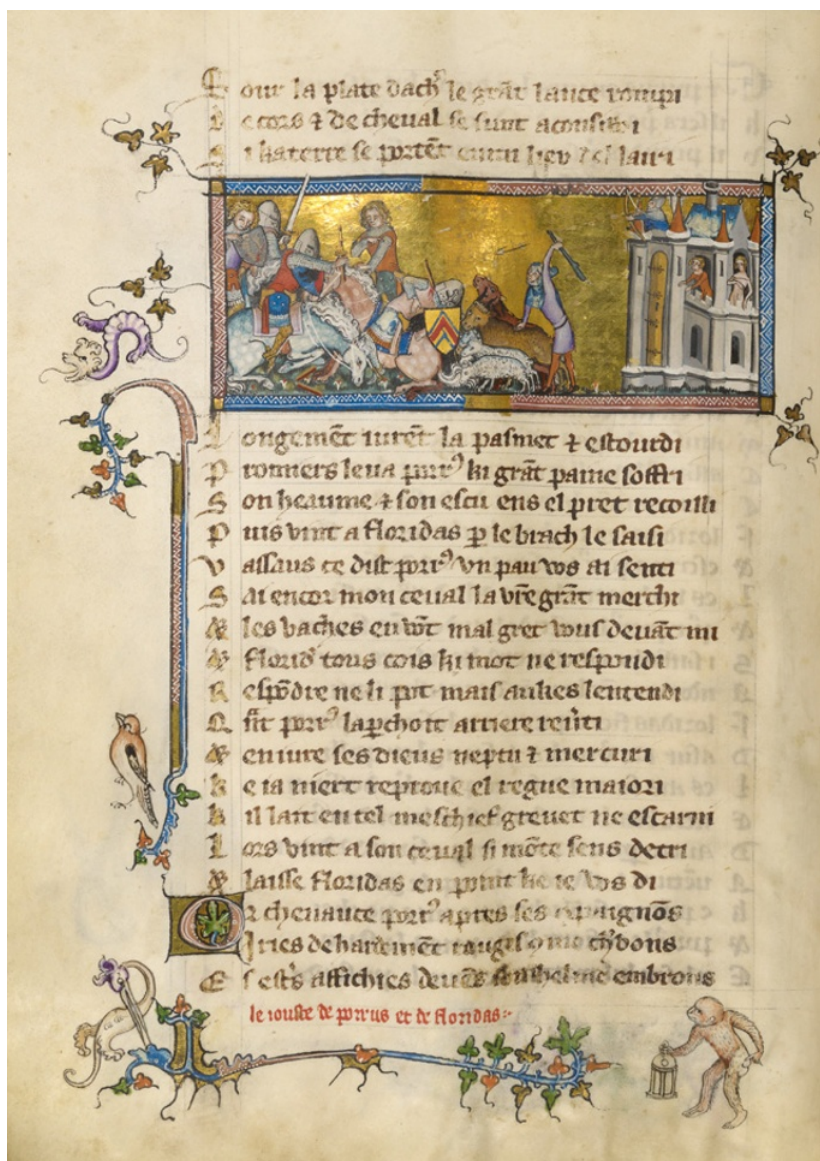 our la plate dach' le grāt lance rompi
e cors ⁊ de cheval se sunt
la terre se portēt lieu
L ongemēt iurēt la pasmet ⁊ estourdi
P romiers leva porr⁹ ki grāt paine soffri
S on heaume ⁊ son escu ens el pret recoilli
P uis vint a floridas ꝑ le brach le saisi
V assaus ce dist porr⁹ vn pau vos ai senti
S ai encor mon ceval la vr̄e grāt merchi
& les vaches en vōt mal gret vous devāt mi
& florid' tous cois ki mot ne respondi
R espōdre ne li pot mais ades lentendi
Q fist porr⁹ arriere
& en iure ses dieus neptu ⁊ mercuri
k e ia niert reprove el regne maiori
k il lait en tel meschief grevet ne escarni
L ors vint a son ceval si mōte sens detri
& laisse floridas en point ke ie vos di
O r chevauce porr⁹ apres ses cōpaignōs
I ries de hardemēt
E s estr's affichies embrons
le iouste de porrus et de floridas